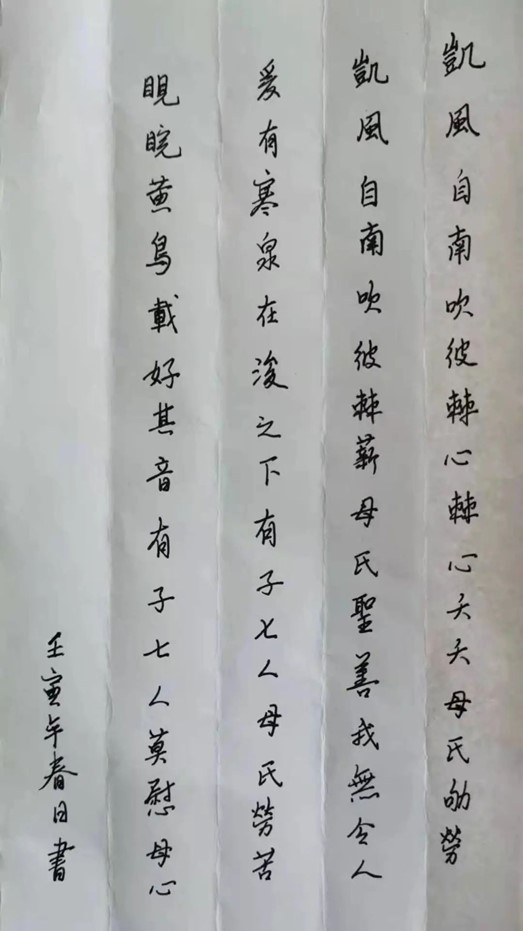 凱風自南吹彼棘心棘心夭夭母氏劬勞
凱風自南吹彼棘薪母氏聖善我無令人
爰有寒泉在浚之下有子七人母氏勞苦
睍睆黃鳥載好其音有子七人莫慰母心
壬寅年春日書